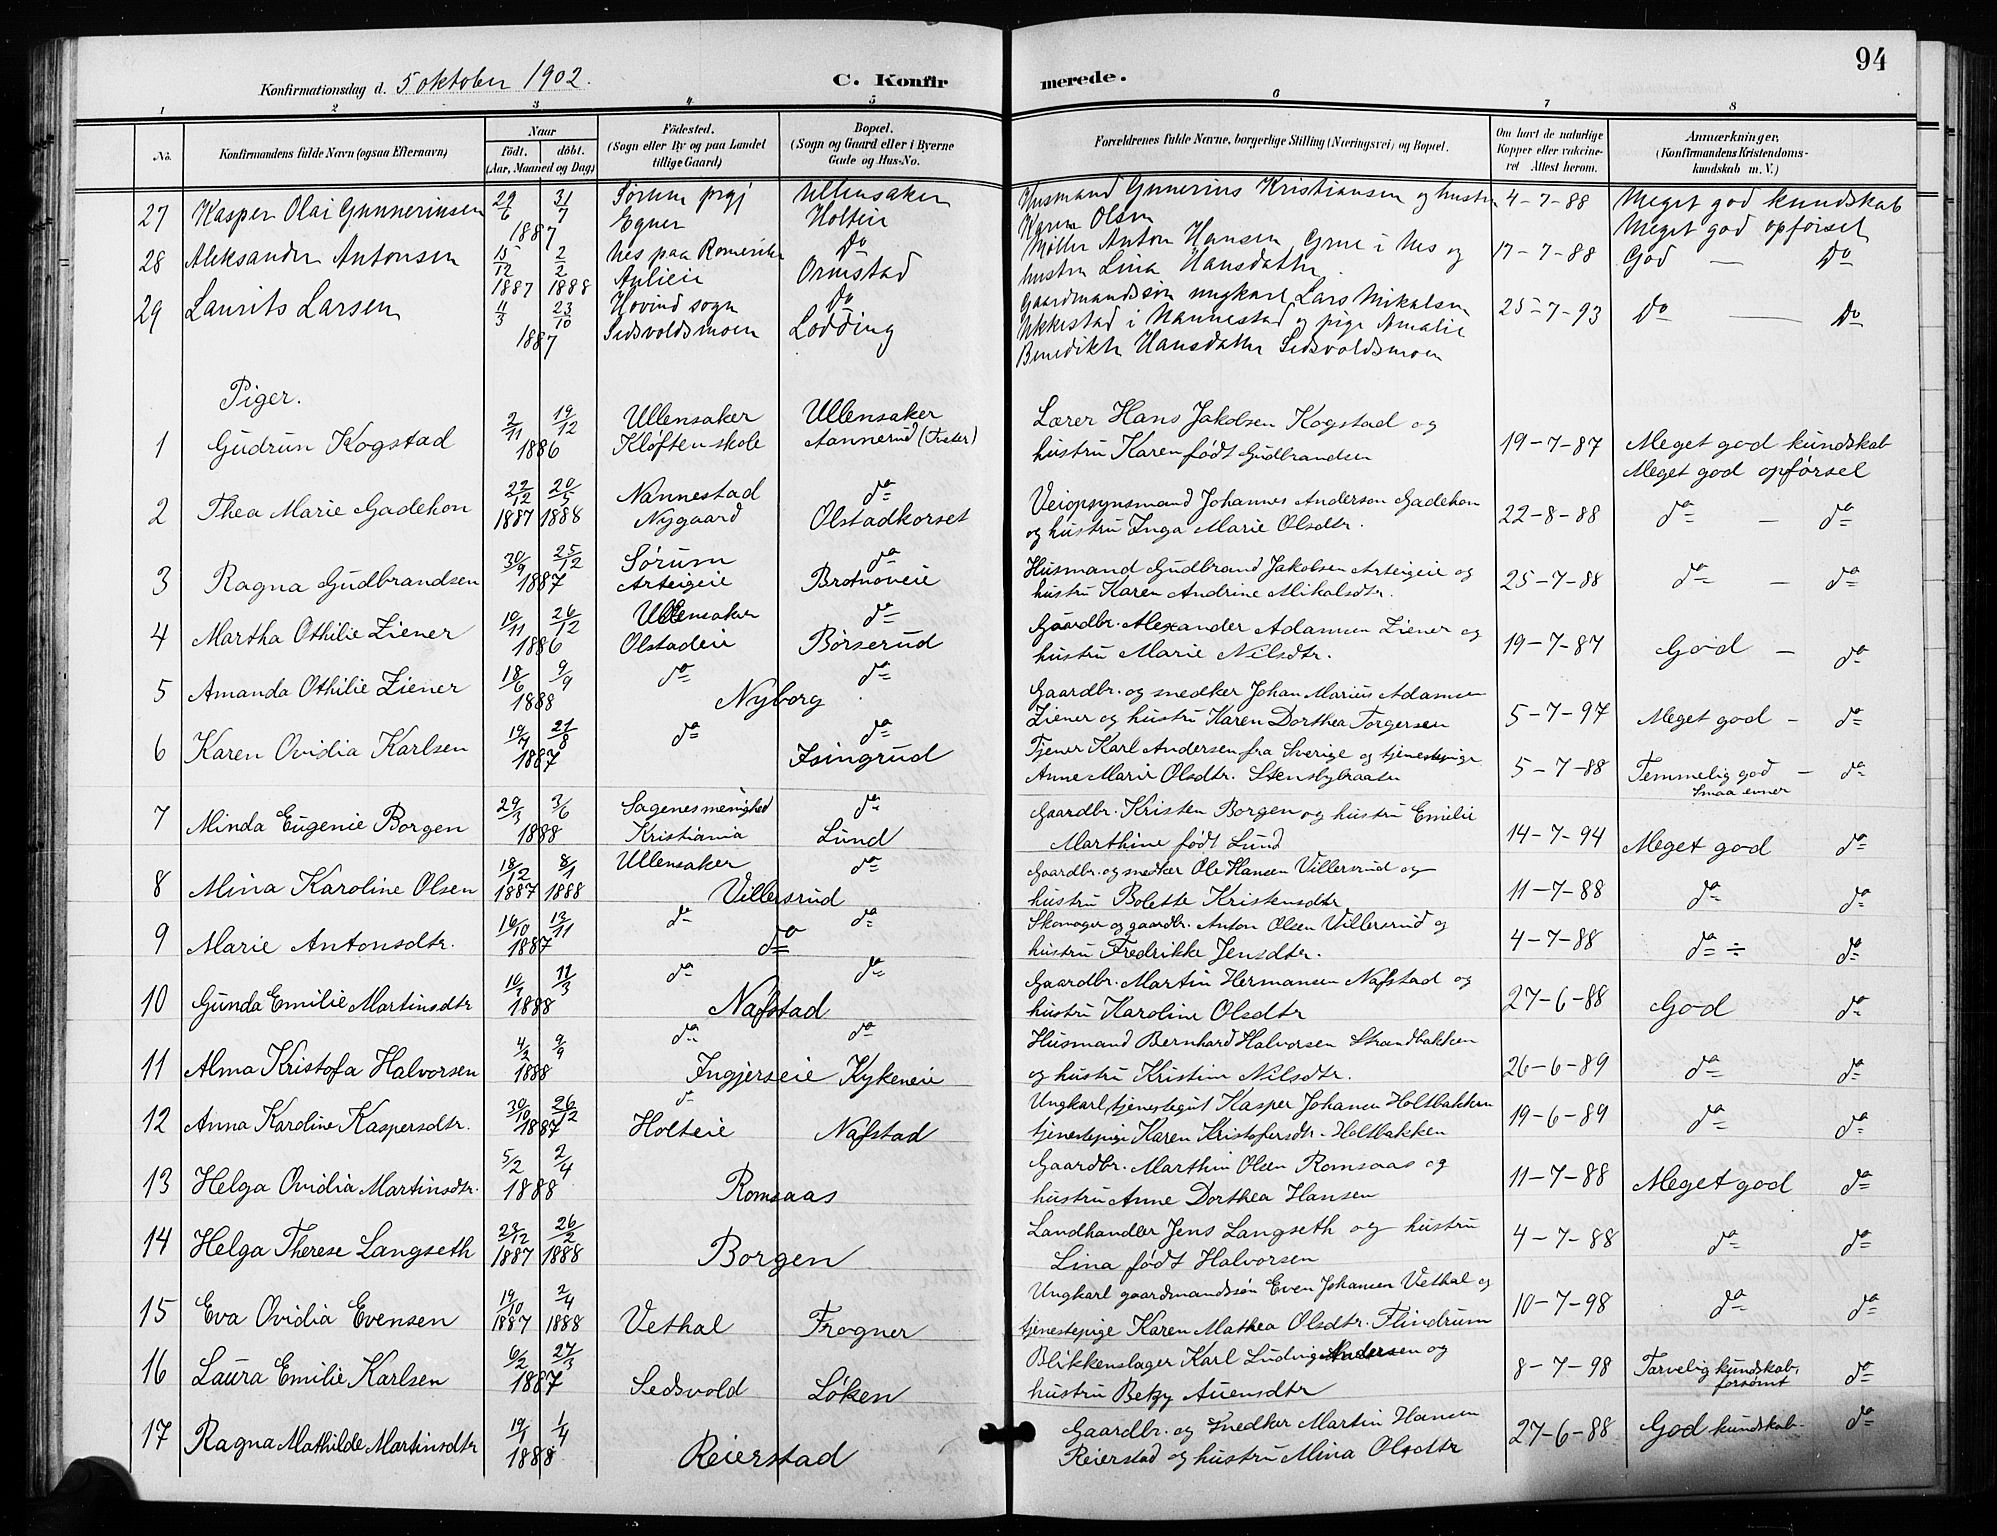 94
Konfirmationsdag d. 5 oktober 1902. C. Konfirmerede.
1 2 3 4 5 6 7 8
No. Konfirmandens fulde Navn (ogsaa Efternavn) Naar födt. döbt. (Aar, Maaned og Dag) Födested. (Sogn eller By og paa Landet tillige Gaard) Bopæl. (Sogn og Gaard eller i Byerne Gade og Hus-No. Forældrenes fulde Navne, borgerlige Stilling (Næringsvei) og Bopæl. Om havt de naturlige Kopper eller vakcineret Attest herom. Anmærkninger, (Konfirmandens Kristendomskundskab m. V.)
27 Kasper Olai Gunnerinsen 29/6 31/7 1887 Sørum prgj Egner Ullensaker Holteie Husmand Gunnerius Kristiansen og hustru Karen Olsen 4-7-88 Meget god kundskab Meget god opførsel
28 Aleksander Antonsen 15/12 1887 2/2 1888 Nes paa Romerike Aulieie do Ormstad Møller Anton Hansen Grue i Nes og hustru Lina Hansdatter. 17-7-88 God — do
29 Laurits Larsen 4/3 23/10 1887 Hovind sogn Sedsvoldsmoen do Lodding Gaardmandssøn ungkarl Lars Mikalsen Ukkestad i Nannestad og pige Amalie Benedikte Hansdatter Sedsvoldsmoen 25-7-93 do — do
Piger.
1 Gudrun Kogstad 2/11 19/12 1886 Ullensaker Kløften skole Ullensaker Aannerud (Trøter) Lærer Hans Jakobsen Kogstad og hustru Karen født Gudbrandsen 19-7-87 Meget god kundskab Meget god opførsel
2 Thea Marie Gadehon 22/12 1887 20/5 1888 Nannestad Nygaard do Olstadkorset Veiopsynsmand Johannes Anderson Gadehon og hustru Inga Marie Olsdtr. 22-8-88 do — do
3 Ragna Gudbrandsen 30/9 25/12 1887 Sørum Arteigeie do Brotnoveie Husmand Gudbrand Jakobsen Arteigeie og hustru Karen Andrine Mikalsdtr. 25-7-88 do — do
4 Martha Othilie Ziener 10/11 26/12 1886 Ullensaker Olstadeie do Börserud Gaardbr. Alexander Adamsen Ziener og hustru Marie Nilsdtr. 19-7-87 God — do
5 Amanda Othilie Ziener 18/6 9/9 1888 do do Nyborg Gaardbr. og snedker Johan Marius Adamsen Ziener og hustru Karen Dorthea Torgersen 5-7-97 Meget god — do
6 Karen Ovidia Karlsen 19/7 21/8 1887 do do Isingrud Tjener Karl Andersen fra Sverige og tjenestepige Anne Marie Olsdtr. Stensbybraaten 5-7-88 Temmelig god — do smaa evner
7 Minda Eugenie Borgen 29/3 3/6 1888 Sagenes menighed Kristiania do Lund Gaardbr. Kristen Borgen og hustru Emilie Marthine født Lund 14-7-94 Meget god do
8 Mina Karoline Olsen 18/12 1887 8/1 1888 Ullensaker do Villersrud Gaardbr. og snedker Ole Hansen Villersrud og hustru Bolette Kristensdtr 11-7-88 do do
9 Marie Antonsdtr. 16/10 13/11 1887 do do do Skomager og gaardbr. Anton Olsen Villersrud og hustru Fredrikke Jensdtr. 4-7-88 do ÷ do
10 Gunda Emilie Martinsdtr 10/1 11/3 1888 do do Nafstad Gaardbr. Martin Hermansen Nafstad og hustru Karoline Olsdtr 27-6-88 God do
11 Alma Kristofa Halvorsen 4/2 9/9 1888 do do Ingjerseie Kykeneie Husmand Bernhard Halvorsen Strandbakken og hustru Kristine Nilsdtr. 26-6-89 do do
12 Anna Karoline Kaspersdtr. 30/10 26/12 1887 do Holteie Nafstad Ungkarl tjenestegut Kasper Johansen Holtbakken tjenestepige Karen Kristofersdtr. Holtbakken 19-6-89 do do
13 Helga Ovidia Martinsdtr. 5/2 2/4 1888 Romsaas Gaardbr. Marthin Olsen Romsaas og hustru Anne Dorthea Hansen 11-7-88 Meget god do
14 Helga Therese Langseth 23/12 1887 26/2 1888 Borgen Landhandler Jens Langseth og hustru Lina født Halvorsen 4-7-88 do do
15 Eva Ovidia Evensen 19/10 1887 2/4 1888 Vethal Frogner Ungkarl gaardmandssön Even Johansen Vethal og tjenestepige Karen Mathea Olsdtr. Flindrum 10-7-98 do do
16 Laura Emilie Karlsen 6/2 27/3 1887 Sedsvold Løken Blikkenslager Karl Ludvig Andersen og hustru Betzy Auensdtr 8-7-98 Tarvelig kundskab, forsømt do
17 Ragna Mathilde Martinsdtr 19/1 1/4 1888 Reierstad Gaardbr. og snedker Martin Hansen Reierstad og hustru Mina Olsdtr 27-6-88 God kundskab. do